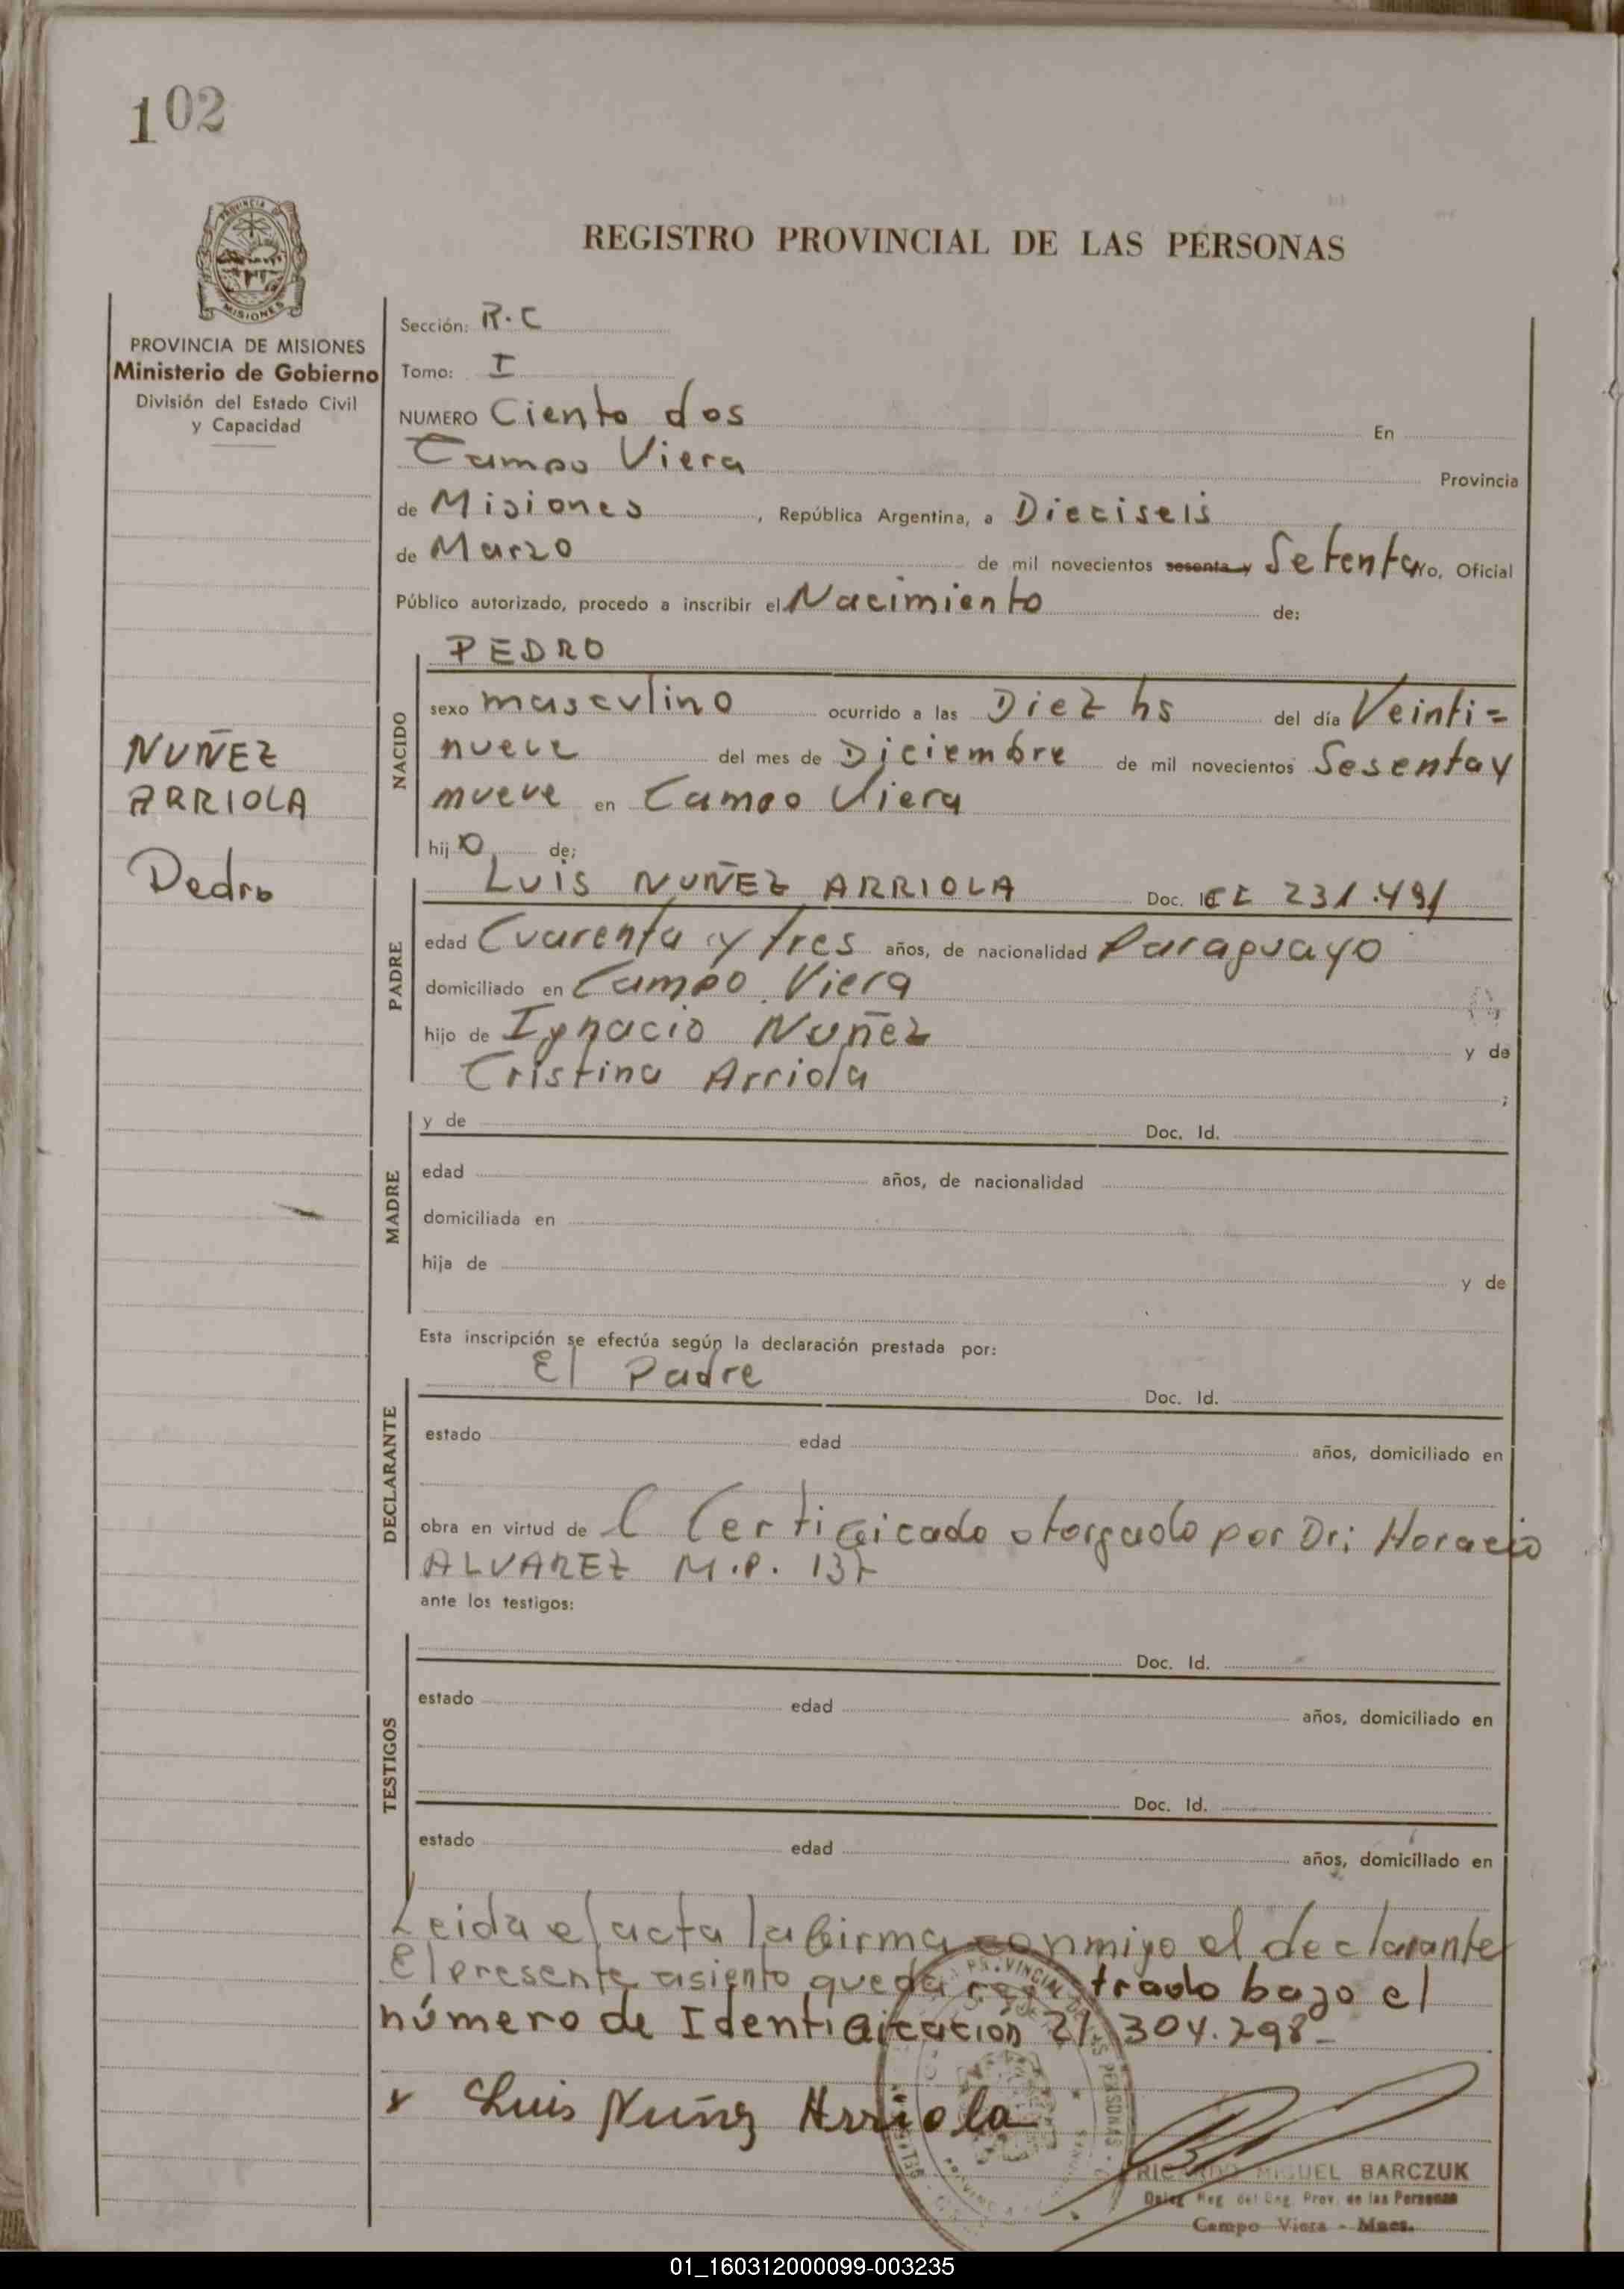 102
PROVINCIA DE
MISIONES
REGISTRO PROVINCIAL DE LAS PERSONAS
PROVINCIA DE MISIONES
Ministerio de Gobierno
División del Estado Civil
y Capacidad
Sección: R.C
Tomo: I
NUMERO Ciento dos En
Campo Viera Provincia
de Misiones, República Argentina, a Dieciseis
de Marzo de mil novecientos sesenta y Setenta Yo, Oficial
Público autorizado, procedo a inscribir el Nacimiento de:
PEDRO
NACIDO
sexo masculino ocurrido a las Diez hs del día Veinti=
nueve del mes de Diciembre de mil novecientos Sesenta y
nueve en Campo Viera
hijo de:
NUÑEZ
ARRIOLA
Pedro
PADRE
LUIS NUÑEZ ARRIOLA Doc. Id 231.491
edad Cuarenta y tres años, de nacionalidad Paraguayo
domiciliado en Campo Viera
hijo de Ignacio Nuñez y de
Cristina Arriola ;
MADRE
y de Doc. Id.
edad años, de nacionalidad
domiciliada en
hija de y de
Esta inscripción se efectúa según la declaración prestada por:
DECLARANTE
El Padre Doc. Id.
estado edad años, domiciliado en
obra en virtud de l Certificado otorgado por Dr: Horacio
ALVAREZ M.P. 137
ante los testigos:
TESTIGOS
Doc. Id.
estado edad años, domiciliado en
Doc. Id.
estado edad años, domiciliado en
Leida el acta la firma conmigo el declarante
El presente asiento queda registrado bajo el
número de Identificación 21.304.298-
x Luis Nuñez Arriola
RICARDO MIGUEL BARCZUK
Deleg. Reg. del Reg. Prov. de las Personas
Campo Viera - Mnes.
01_160312000099-003235